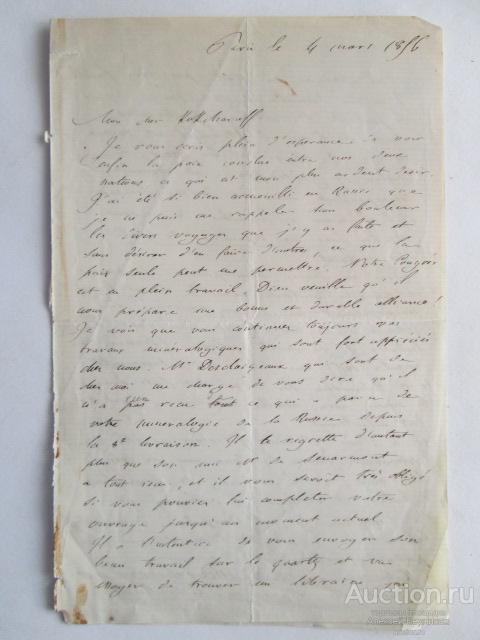 Paris le 4 mars 1856
Mon cher Kokcharoff
Je vous écris plein d'espérance de voir
enfin la paix conclue entre nos deux
nations ce qui est mon plus ardent désir.
J'ai été si bien accueilli en Russie que
je ne puis me rappeler sans bonheur
les divers voyages que j'y ai faits et
sans désirer d'en faire d'autres, ce que la
paix seule peut me permettre. Notre Congrès
est en plein travail. Dieu veuille qu'il
nous prépare une bonne et durable alliance!
Je vois que vous continuez toujours vos
travaux minéralogiques qui sont fort appréciés
chez nous. Mr Descloizeaux qui sort de
chez moi me charge de vous dire qu'il
n'a pas reçu tout ce qui a paru de
votre minéralogie de la Russie depuis
la livraison. Il le regrette d'autant
plus que son ami Mr de Senarmont
a tout reçu, et il vous serait très obligé
si vous pouviez lui compléter votre
ouvrage jusqu'au moment actuel
Il a l'intention de vous envoyer son
beau travail sur le quartz et va
essayer de trouver un libraire qui
Auction.ru